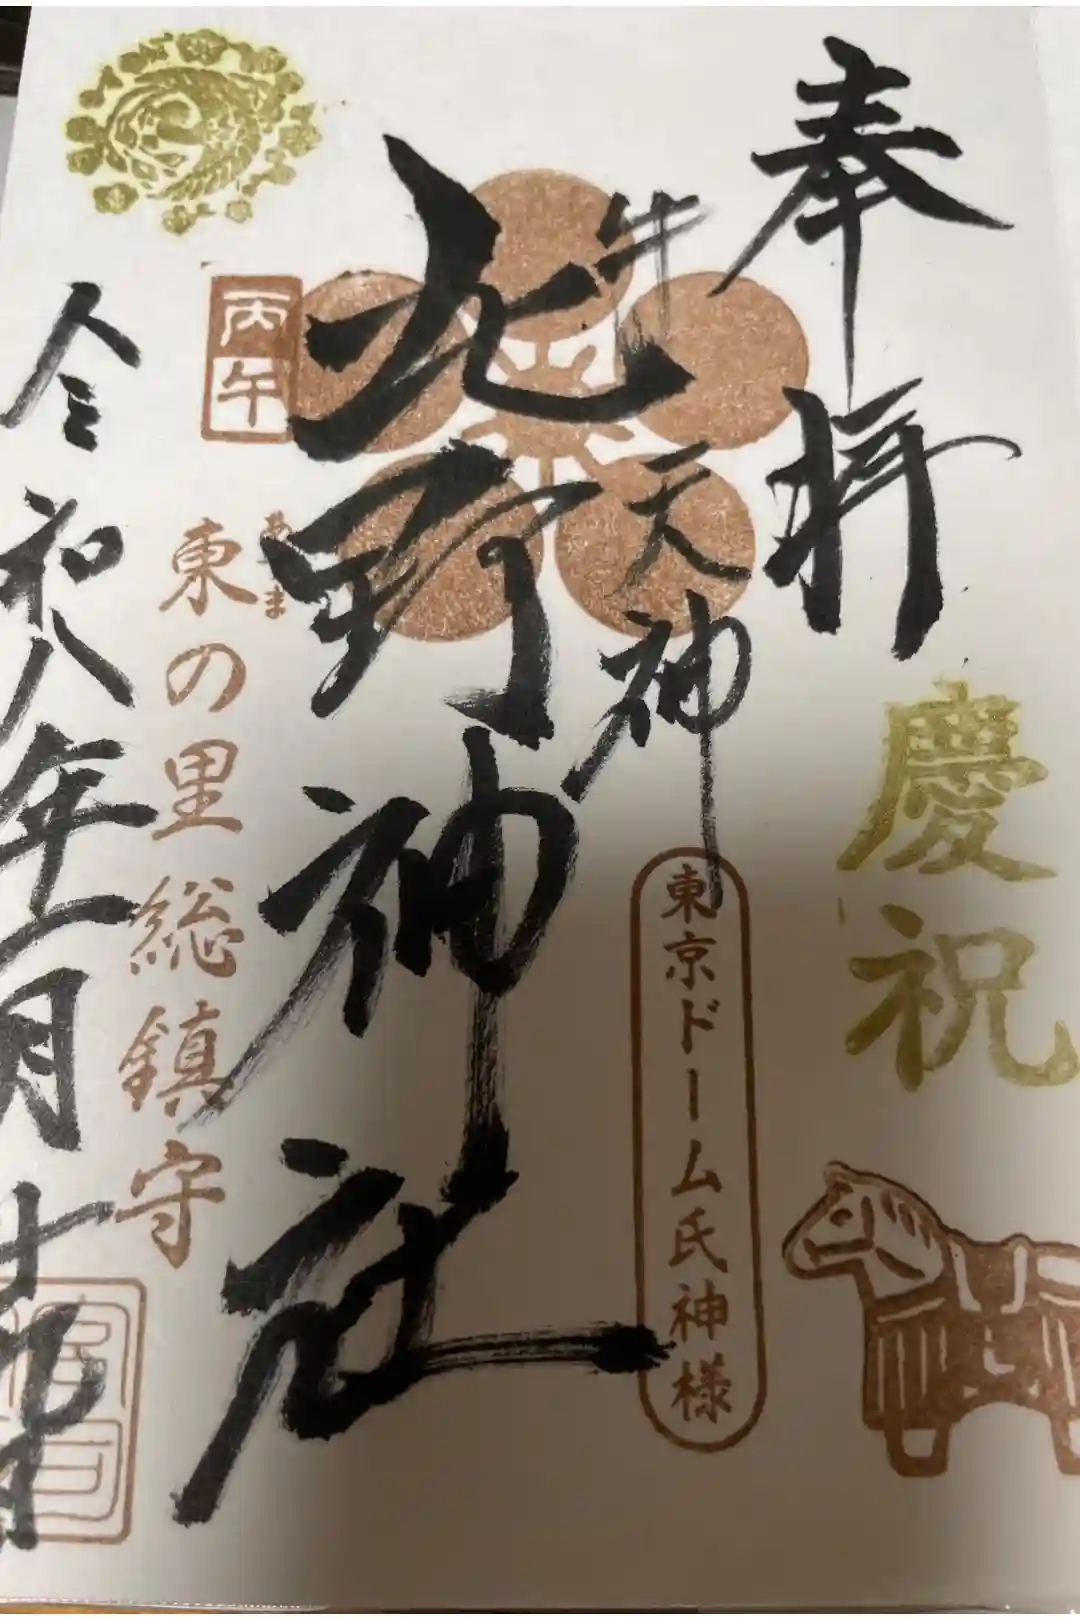 奉拝
慶祝
牛天神
東京ドーム氏神様
北野神社
丙午
あづま
東の里総鎮守
令和八年一月